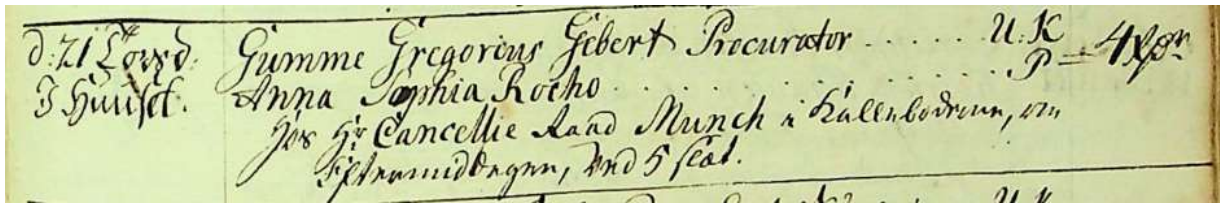 d: 21 Løverd. Gumme Gregorius Gebert Procurator ...... U: K
I Huuset. Anna Sophia Rocho ............ P = 4 rdr
Hos Hr Cancellie Raad Munch i Kalleboderne, om
Eftermiddagen, Ved 5 slæt.
U. K